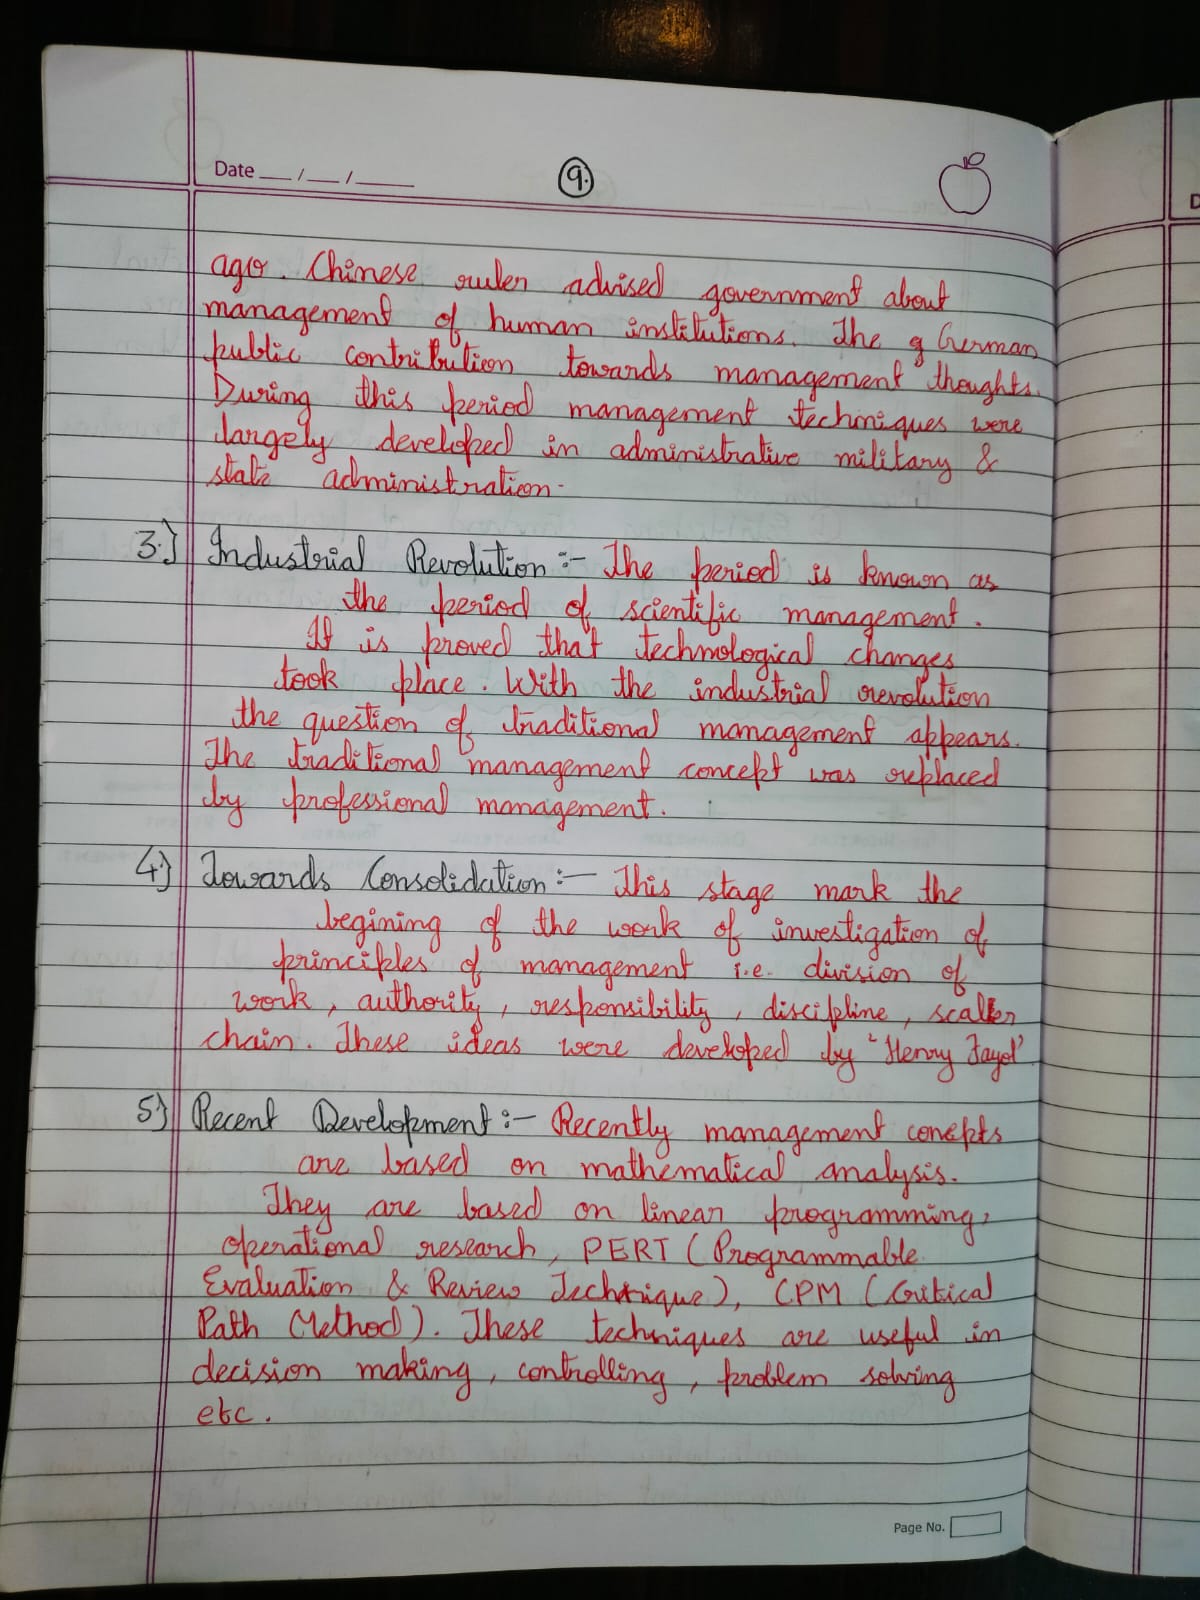 Date __/__/____
9.
ago. Chinese ruler advised government about
management of human institutions. The g German
public contribution towards management thoughts.
During this period management techniques were
largely developed in administrative military &
state administration.
3.) Industrial Revolution :- The period is known as
the period of scientific management.
It is proved that technological changes
took place. With the industrial revolution
the question of traditional management appears.
The traditional management concept was replaced
by professional management.
4.) Towards Consolidation :- This stage mark the
begining of the work of investigation of
principles of management i.e. division of
work, authority, responsibility, discipline, scaller
chain. These ideas were developed by "Henry Fayol"
5) Recent Development :- Recently management conepts
are based on mathematical analysis.
They are based on linear programming,
operational research, PERT (Programmable
Evaluation & Review Technique), CPM (Critical
Path Method). These techniques are useful in
decision making, controlling, problem solving
etc.
Page No.